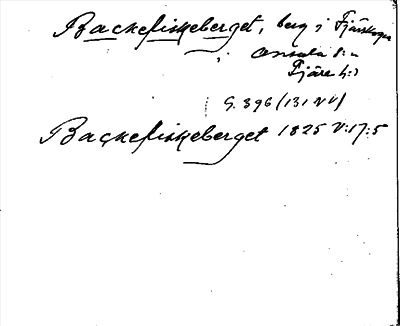 Backefiskeberget, berg i
Onsala s:n
Fjäre h:d
G. 396 (131 NV)
Backefiskeberget 1825 V:17:5